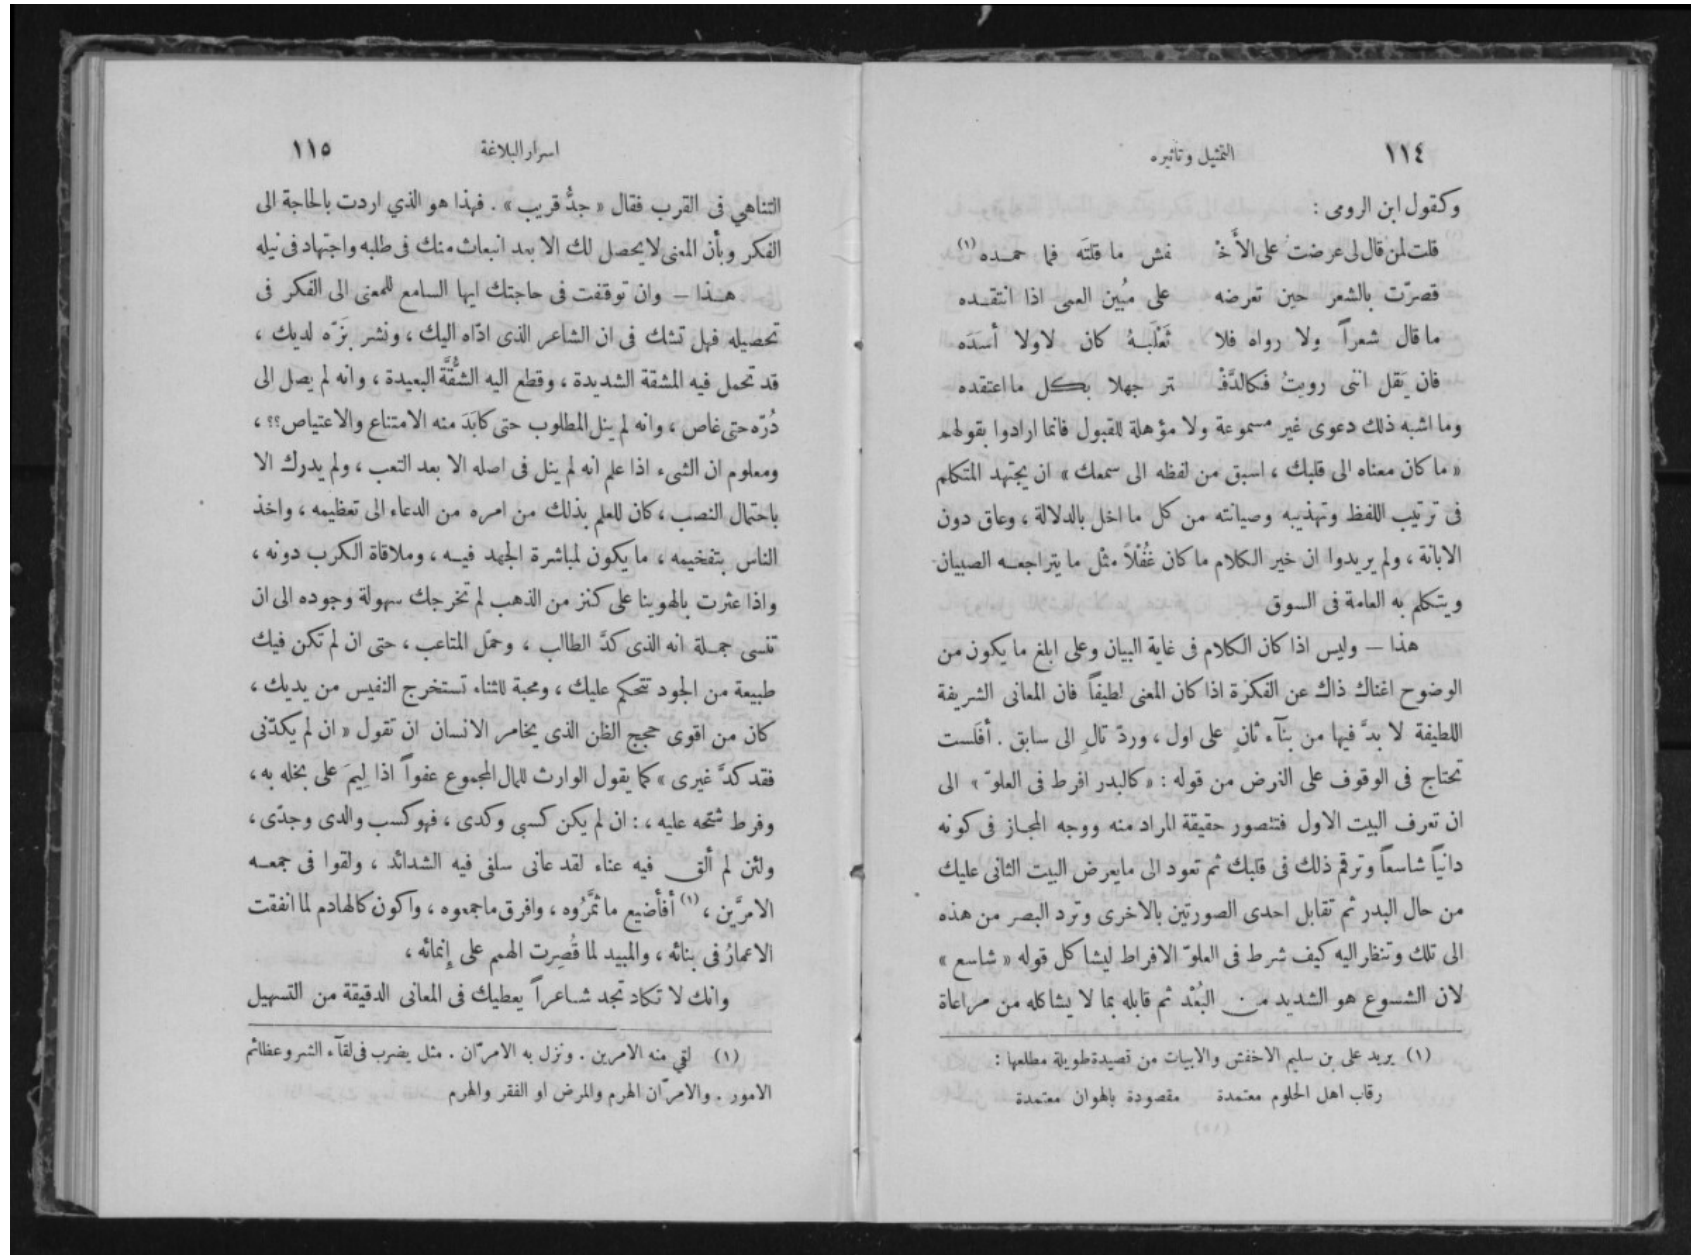 ١١٤
التمثيل وتأثيره
وكقول ابن الرومى :
قلت لمن قال لى عرضت على الأَخْ فش ما قلتَه فما حمـده (١)
قصرّت بالشعر حين تعرضه على مُبين العمى اذا انتقـده
ما قال شعراً ولا رواه فلا ثَعْلَبـهُ كان لاولا أسَدَه
فان يَقل اننى رويتُ فكالدَّفْ تر جهلا بكل ما اعتقده
وما اشبه ذلك دعوى غير مسموعة ولا مؤهلة للقبول فانما ارادوا بقولهم
« ما كان معناه الى قلبك ، اسبق من لفظه الى سمعك » ان يجتهد المتكلم
فى ترتيب اللفظ وتهذيبه وصيانته من كل ما اخل بالدلالة ، وعاق دون
الابانة ، ولم يريدوا ان خير الكلام ما كان غُفْلاً مثل ما يتراجعـه الصبيان
ويتكلم به العامة فى السوق
هذا — وليس اذا كان الكلام فى غاية البيان وعلى ابلغ ما يكون من
الوضوح اغناك ذاك عن الفكرة اذا كان المعنى لطيفاً فان المعانى الشريفة
اللطيفة لا بدَّ فيها من بنآء ثانٍ على اول ، وردّ تالٍ الى سابق . أفلست
تحتاج فى الوقوف على الغرض من قوله : « كالبدر افرط فى العلوّ » الى
ان تعرف البيت الاول فتتصور حقيقة المراد منه ووجه المجاز فى كونه
دانياً شاسعاً وترقم ذلك فى قلبك ثم تعود الى مايعرض البيت الثانى عليك
من حال البدر ثم تقابل احدى الصورتين بالاخرى وترد البصر من هذه
الى تلك وتنظر اليه كيف شرط فى العلوّ الافراط ليشاكل قوله « شاسع »
لان الشسوع هو الشديد من البُعْد ثم قابله بما لا يشاكله من مراعاة
(١) يريد على بن سليم الاخفش والابيات من قصيدة طويلة مطلعها :
رقاب اهل الحلوم معتمدة مقصودة بالهوان معتمدة
اسرار البلاغة
١١٥
التناهي فى القرب فقال « جدُّ قريب » . فهذا هو الذي اردت بالحاجة الى
الفكر وبأن المعنى لا يحصل لك الا بعد انبعاث منك فى طلبه واجتهاد فى نيله
هـذا — وان توقفت فى حاجتك ايها السامع للمعنى الى الفكر فى
تحصيله فهل تشك فى ان الشاعر الذى ادّاه اليك ، ونشر بَزّه لديك ،
قد تحمل فيه المشقة الشديدة ، وقطع اليه الشُّقَّة البعيدة ، وانه لم يصل الى
دُرّه حتى غاص ، وانه لم ينل المطلوب حتى كابَدَ منه الامتناع والاعتياص؟؟ ،
ومعلوم ان الشىء اذا علم انه لم ينل فى اصله الا بعد التعب ، ولم يدرك الا
باحتمال النصب ، كان للعلم بذلك من امره من الدعاء الى تعظيمه ، واخذ
الناس بتفخيمه ، ما يكون لمباشرة الجهد فيـه ، وملاقاة الكرب دونه ،
واذا عثرت بالهوينا على كنز من الذهب لم تخرجك سهولة وجوده الى ان
تنسى جمـلة انه الذى كدَّ الطالب ، وحمّل المتاعب ، حتى ان لم تكن فيك
طبيعة من الجود تتحكم عليك ، ومحبة للثناء تستخرج النفيس من يديك ،
كان من اقوى حجج الظن الذى يخامر الانسان ان تقول « ان لم يكدّنى
فقد كدَّ غيرى » كما يقول الوارث للمال المجموع عفواً اذا لِيمَ على بخله به ،
وفرط شحّه عليه ،: ان لم يكن كسبى وكدى ، فهو كسب والدى وجدّى ،
ولئن لم ألق فيه عناء لقد عانى سلفى فيه الشدائد ، ولقوا فى جمعـه
الامرَّين ، (١) أفأضيع ما ثمَّرُوه ، وافرق ما جمعوه ، واكون كالهادم لما انفقت
الاعمارُ فى بنائه ، والمبيد لما قُصِرت الهمم على إِنمائه ،
وانك لا تكاد تجد شـاعراً يعطيك فى المعانى الدقيقة من التسهيل
(١) لقي منه الامرين . ونزل به الامرّان . مثل يضرب فى لقآء الشر وعظائم
الامور . والامرّان الهرم والمرض او الفقر والهرم